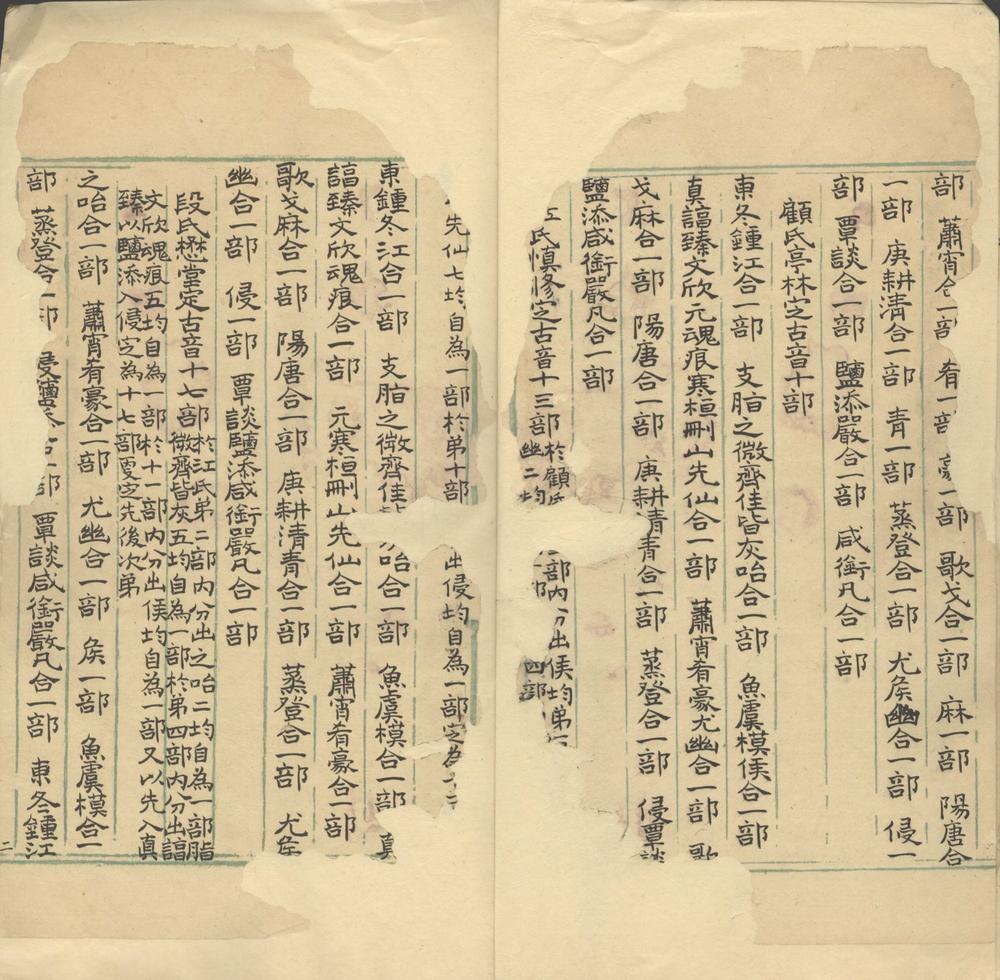 部 蕭宵合一部 肴一部 豪一部 歌戈合一部 麻一部 陽唐合
一部 庚耕清合一部 青一部 蒸登合一部 尤矦幽合一部 侵一
部 覃談合一部 鹽添嚴合一部 咸銜凡合一部
顧氏亭林定古音十部
東冬鍾江合一部 支脂之微齊佳皆灰咍合一部 魚虞模侯合一部
真諄臻文欣元魂痕寒桓刪山先仙合一部 蕭宵肴豪尤幽合一部 歌
戈麻合一部 陽唐合一部 庚耕清青合一部 蒸登合一部 侵覃談
鹽添咸銜嚴凡合一部
氏慎修定古音十三部 於顧
部內分出侯均弟
幽二均
部 四部
先仙七均自為一部於弟十部 出侵均自為一部定為
東鍾冬江合一部 支脂之微齊佳 咍合一部 魚虞模合一部 真
諄臻文欣魂痕合一部 元寒桓刪山先仙合一部 蕭宵肴豪合一部
歌戈麻合一部 陽唐合一部 庚耕清青合一部 蒸登合一部 尤矦
幽合一部 侵一部 覃談鹽添咸銜嚴凡合一部
段氏懋堂定古音十七部 於江氏弟二部內分出之咍二均自為一部脂
微齊皆灰五均自為一部於弟四部內分出諄
文欣魂痕五均自為一部於十一部內分出侯均自為一部又以先入真
臻以鹽添入侵定為十七部更定先後次弟
之咍合一部 蕭宵肴豪合一部 尤幽合一部 矦一部 魚虞模合一
部 蒸登合一部 侵鹽添合一部 覃談咸銜嚴凡合一部 東冬鍾江
二